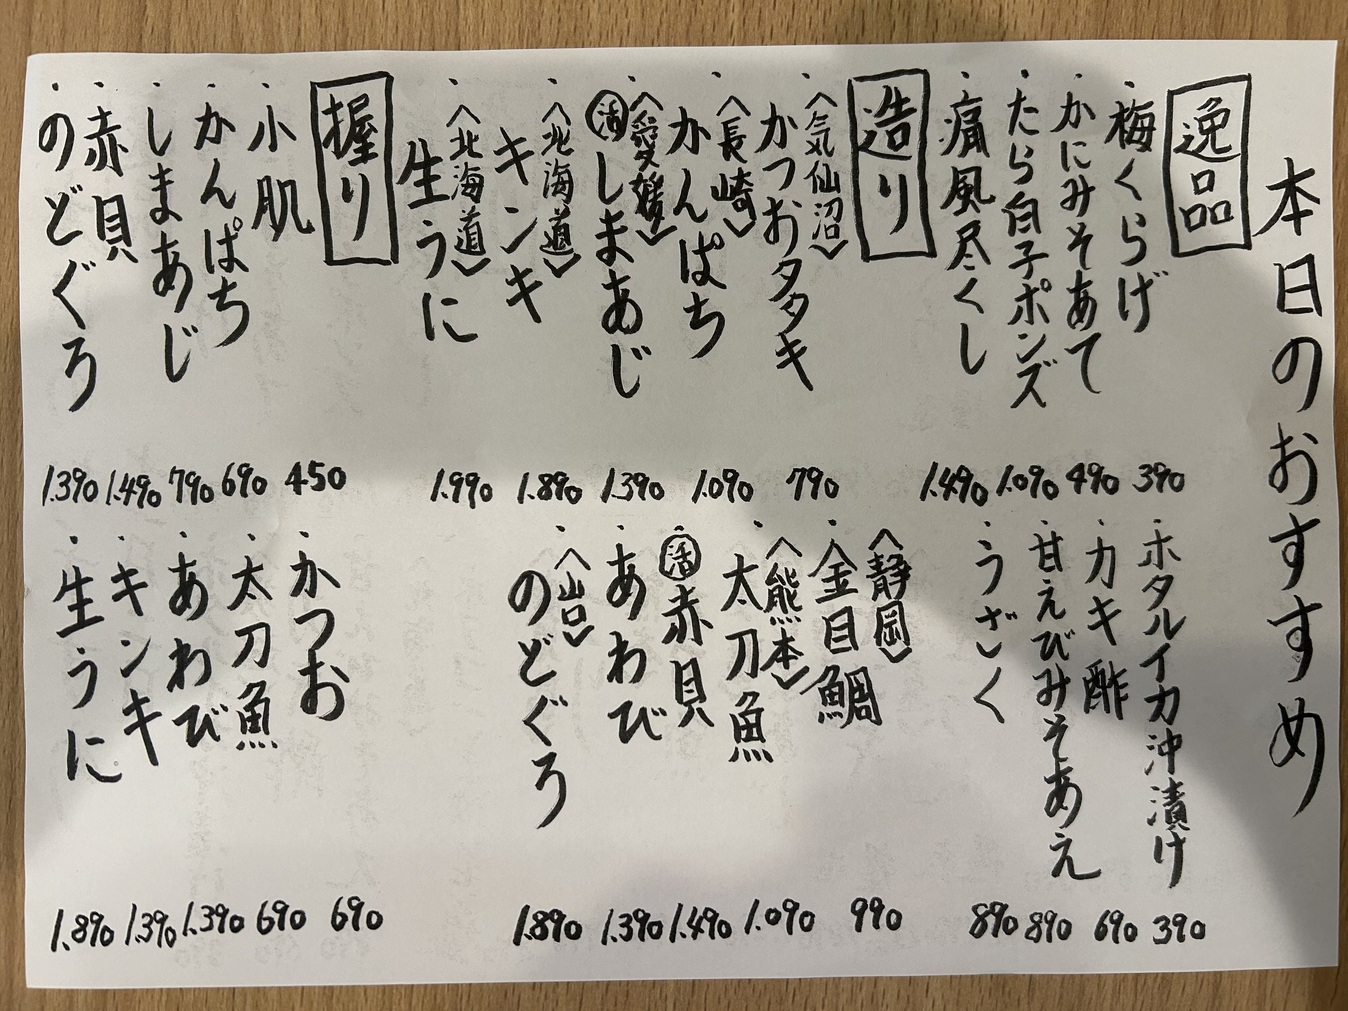 本日のおすすめ
逸品
・梅くらげ 390
・かにみそあて 490
・たら白子ポンズ 1.090
・痛風尽くし 1.490
・ホタルイカ沖漬け 390
・カキ酢 690
・甘えびみそあえ 890
・うざく 890
造り
・〈気仙沼〉かつおタタキ 790
・〈長崎〉かんぱち 1.090
・〈愛媛〉活しまあじ 1.390
・〈北海道〉キンキ 1.890
・〈北海道〉生うに 1.990
・〈静岡〉金目鯛 990
・〈熊本〉太刀魚 1.090
・活赤貝 1.490
・あわび 1.390
・〈山口〉のどぐろ 1.890
握り
・小肌 450
・かんぱち 690
・しまあじ 790
・赤貝 1.490
・のどぐろ 1.390
・かつお 690
・太刀魚 690
・あわび 1.390
・キンキ 1.390
・生うに 1.890